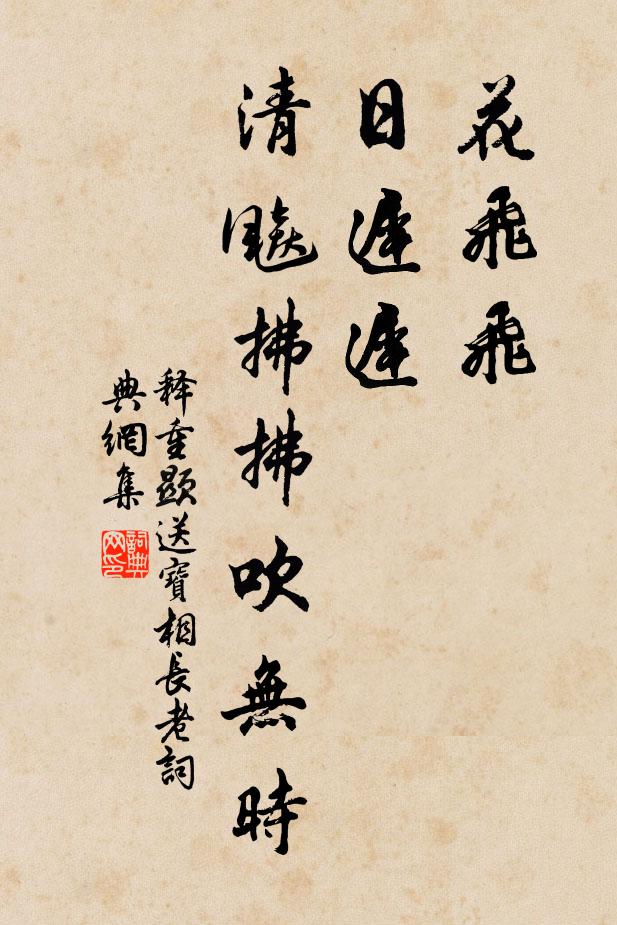 花飛飛
日遲遲
清飈拂拂吹無時
释重顯送寶相長老詞
典網集
詞典
网印